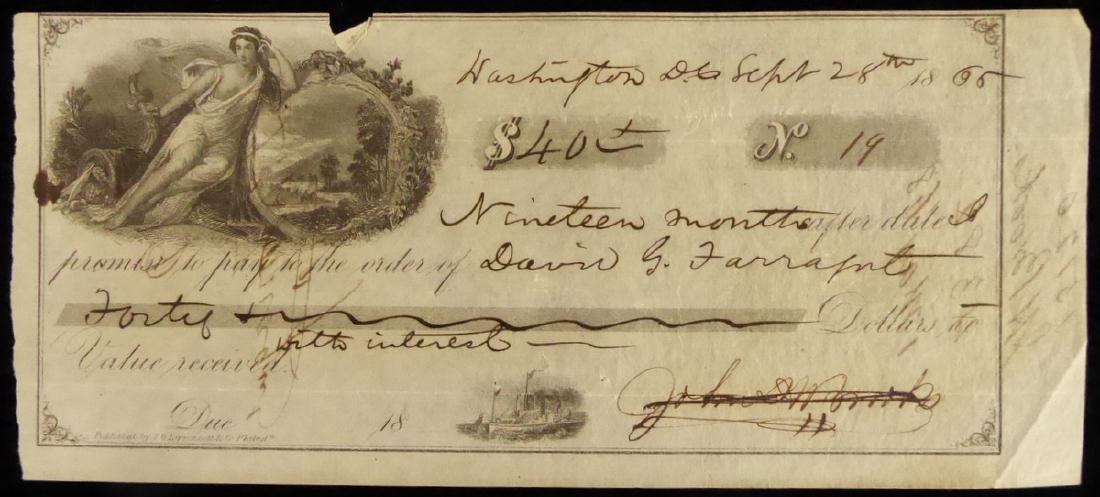 Washington DC Sept 28th 1865
$40 No. 19
Nineteen months after date I
promise to pay to the order of David G. Farragut
Forty Dollars
with interest
Value received.
Due 18
Published by J. B. Lippincott & Co. Philada.
John